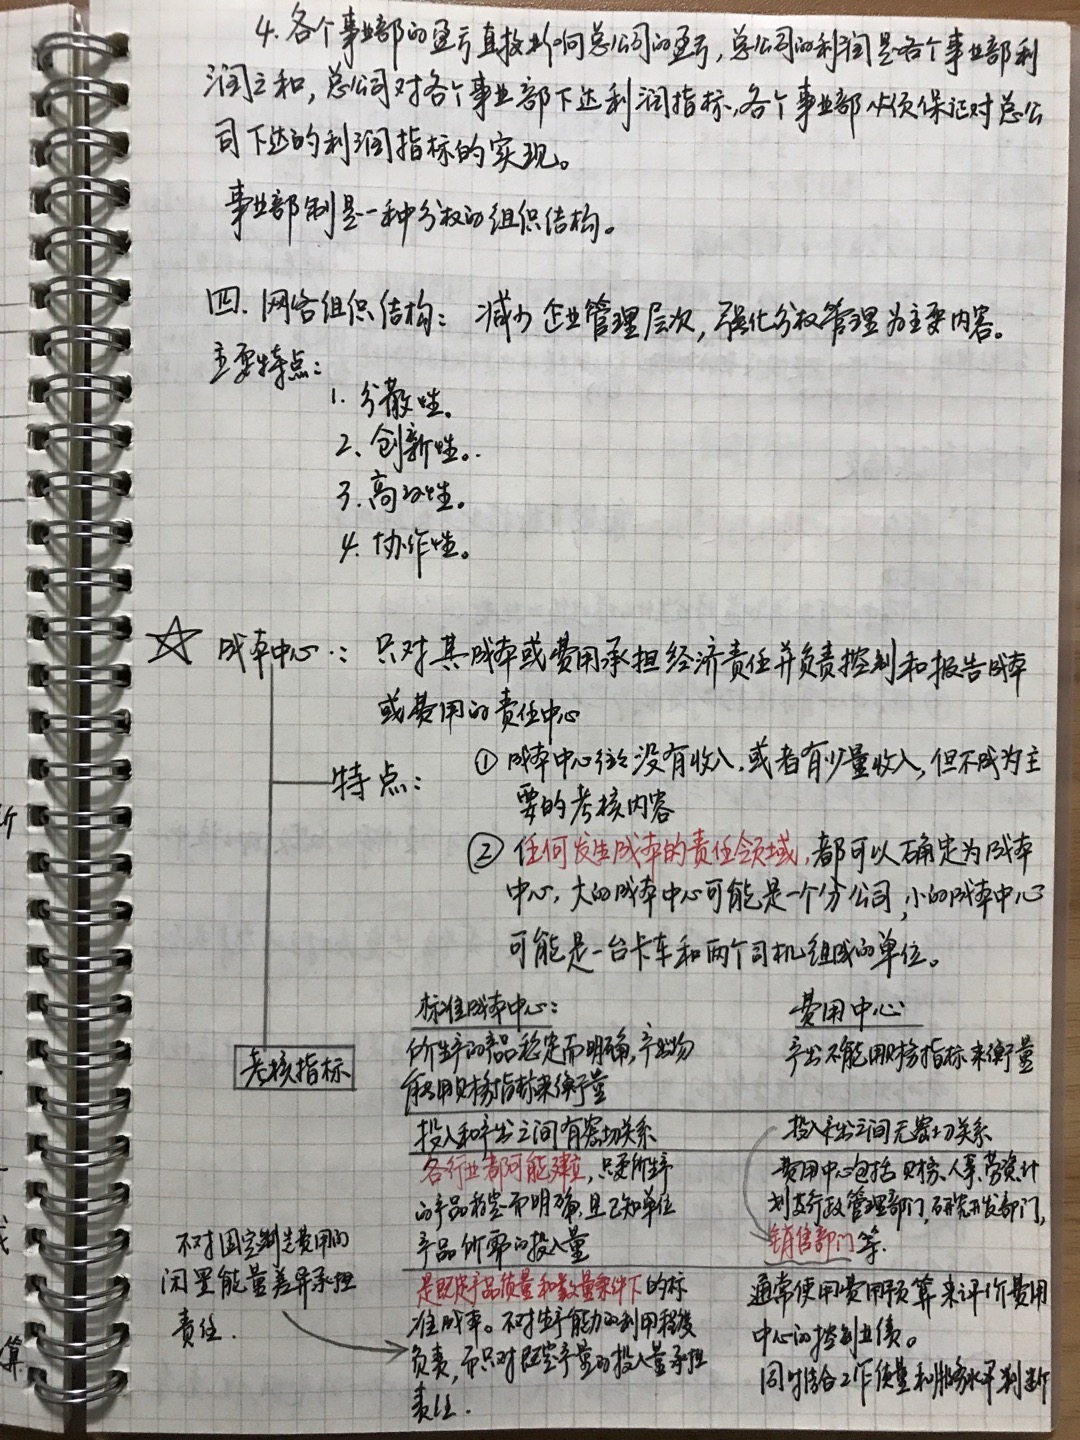 4. 各个事业部的盈亏直接影响总公司的盈亏,总公司的利润是各个事业部利
润之和,总公司对各个事业部下达利润指标,各个事业部必须保证对总公
司下达的利润指标的实现。
事业部制是一种分权的组织结构。
四. 网络组织结构: 减少企业管理层次,强化分权管理为主要内容。
主要特点:
1. 分散性。
2、创新性。
3. 高效性。
4. 协作性。
☆ 成本中心: 只对其成本或费用承担经济责任并负责控制和报告成本
或费用的责任中心
特点: ① 成本中心往往没有收入,或者有少量收入,但不成为主
要的考核内容
② 任何发生成本的责任领域,都可以确定为成本
中心,大的成本中心可能是一个分公司,小的成本中心
可能是一台卡车和两个司机组成的单位。
考核指标
标准成本中心:
所生产的产品稳定而明确,产出物
能用财务指标来衡量
投入和产出之间有密切关系
各行业都可能建立,只要所生产
的产品稳定而明确,且已知单位
产品所需的投入量
是既定产品质量和数量条件下的标
准成本。不对生产能力的利用程度
负责,而只对既定产量的投入量承担
责任.
费用中心
产出不能用财务指标来衡量
投入产出之间无密切关系
费用中心包括财务、人事、劳资、计
划等行政管理部门,研究开发部门,
销售部门等.
通常使用费用预算来评价费用
中心的控制业绩。
同时结合工作质量和服务水平判断
不对固定制造费用的
闲置能量差异承担
责任.
新
成
算